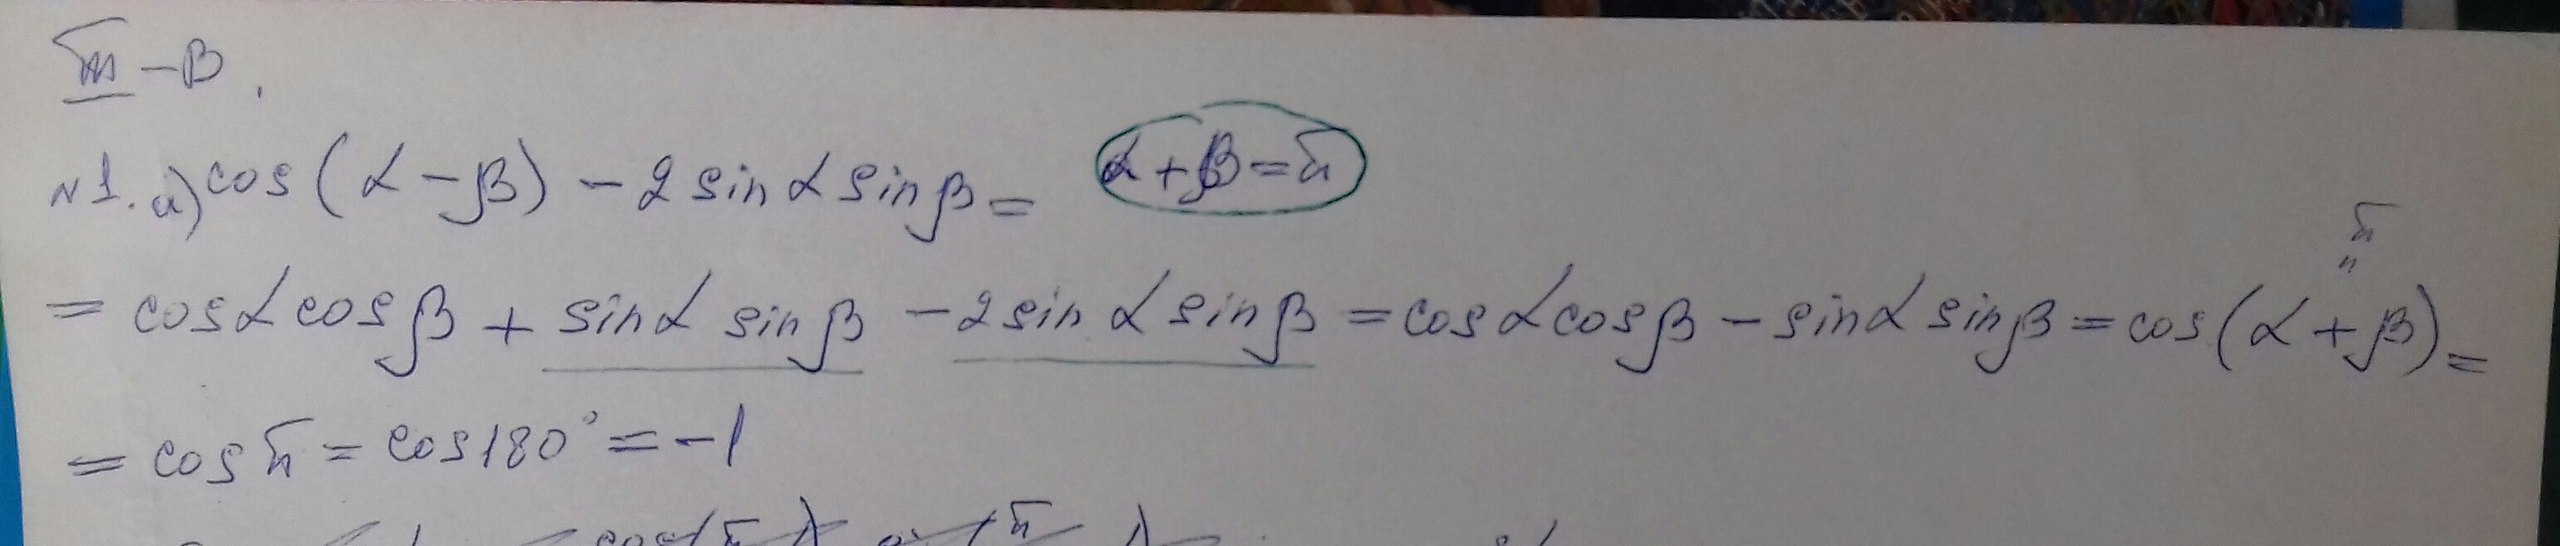 III – В.
№1. а) cos(α – β) – 2 sin α sin β = α + β = π
π
= cos α cos β + sin α sin β – 2 sin α sin β = cos α cos β – sin α sin β = cos(α + β) =
= cos π = cos 180° = –1